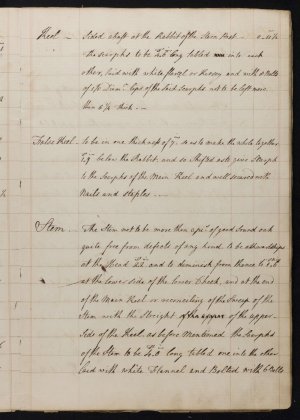 Keel — Sided Aft at the Rabbit of the Stem Post —
The Scarphs to be long tabled into each
other, Laid with white flannel or Kersey and with 8 Bolts
of Diamr. Lips of the Keel Scarphs not to be left more
than thick. —
False Keel. — to be in one thickness of so as to make the whole together
below the Rabbit and so Shifted as to give Strength
to the Scarphs of the Main Keel and well secured with
Nails and Staples. —
Stem — The Stem not to be more than of good Sound oak
quite free from defects of any kind, to be
at the Head and to diminish from thence to
at the lower side of the lower Cheek, and at the end
of the Main Keel or connecting of the Sweep of the
Stem with the Straight of the upper
Side of the Keel, as before Mentioned the Scarphs
of the Stem to be long tabled one into the other
Laid with white Flannel and Bolted with 6 Bolts